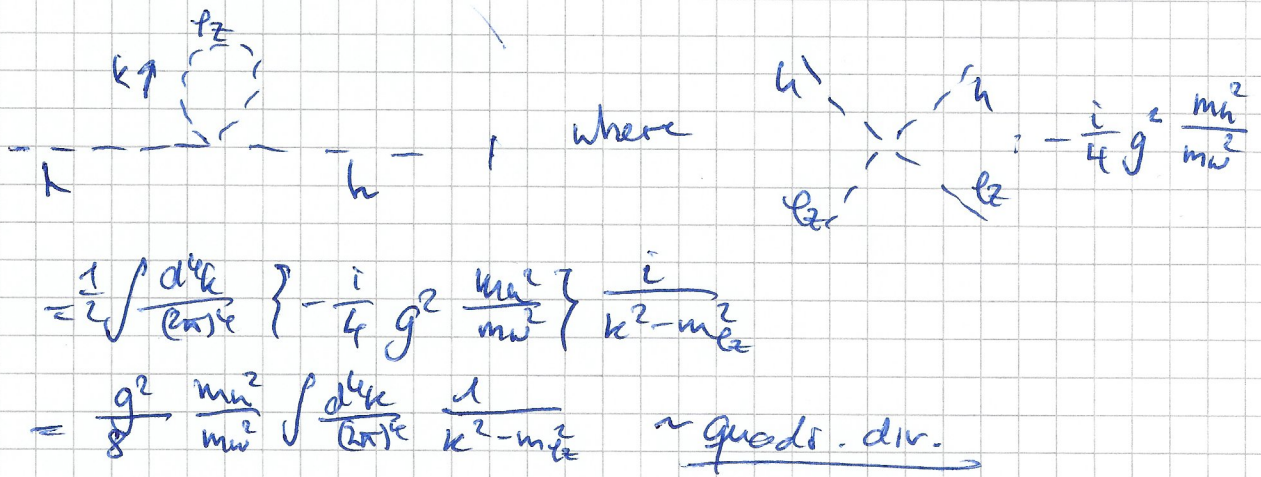 φz
k↑
h h , where h h φz φz : -i/4 g² mh²/mw²
= 1/2 ∫ d⁴k/(2π)⁴ { -i/4 g² mh²/mw² } i/(k²-m²φz)
= g²/8 mh²/mw² ∫ d⁴k/(2π)⁴ 1/(k²-m²φz) ~ quadr. div.